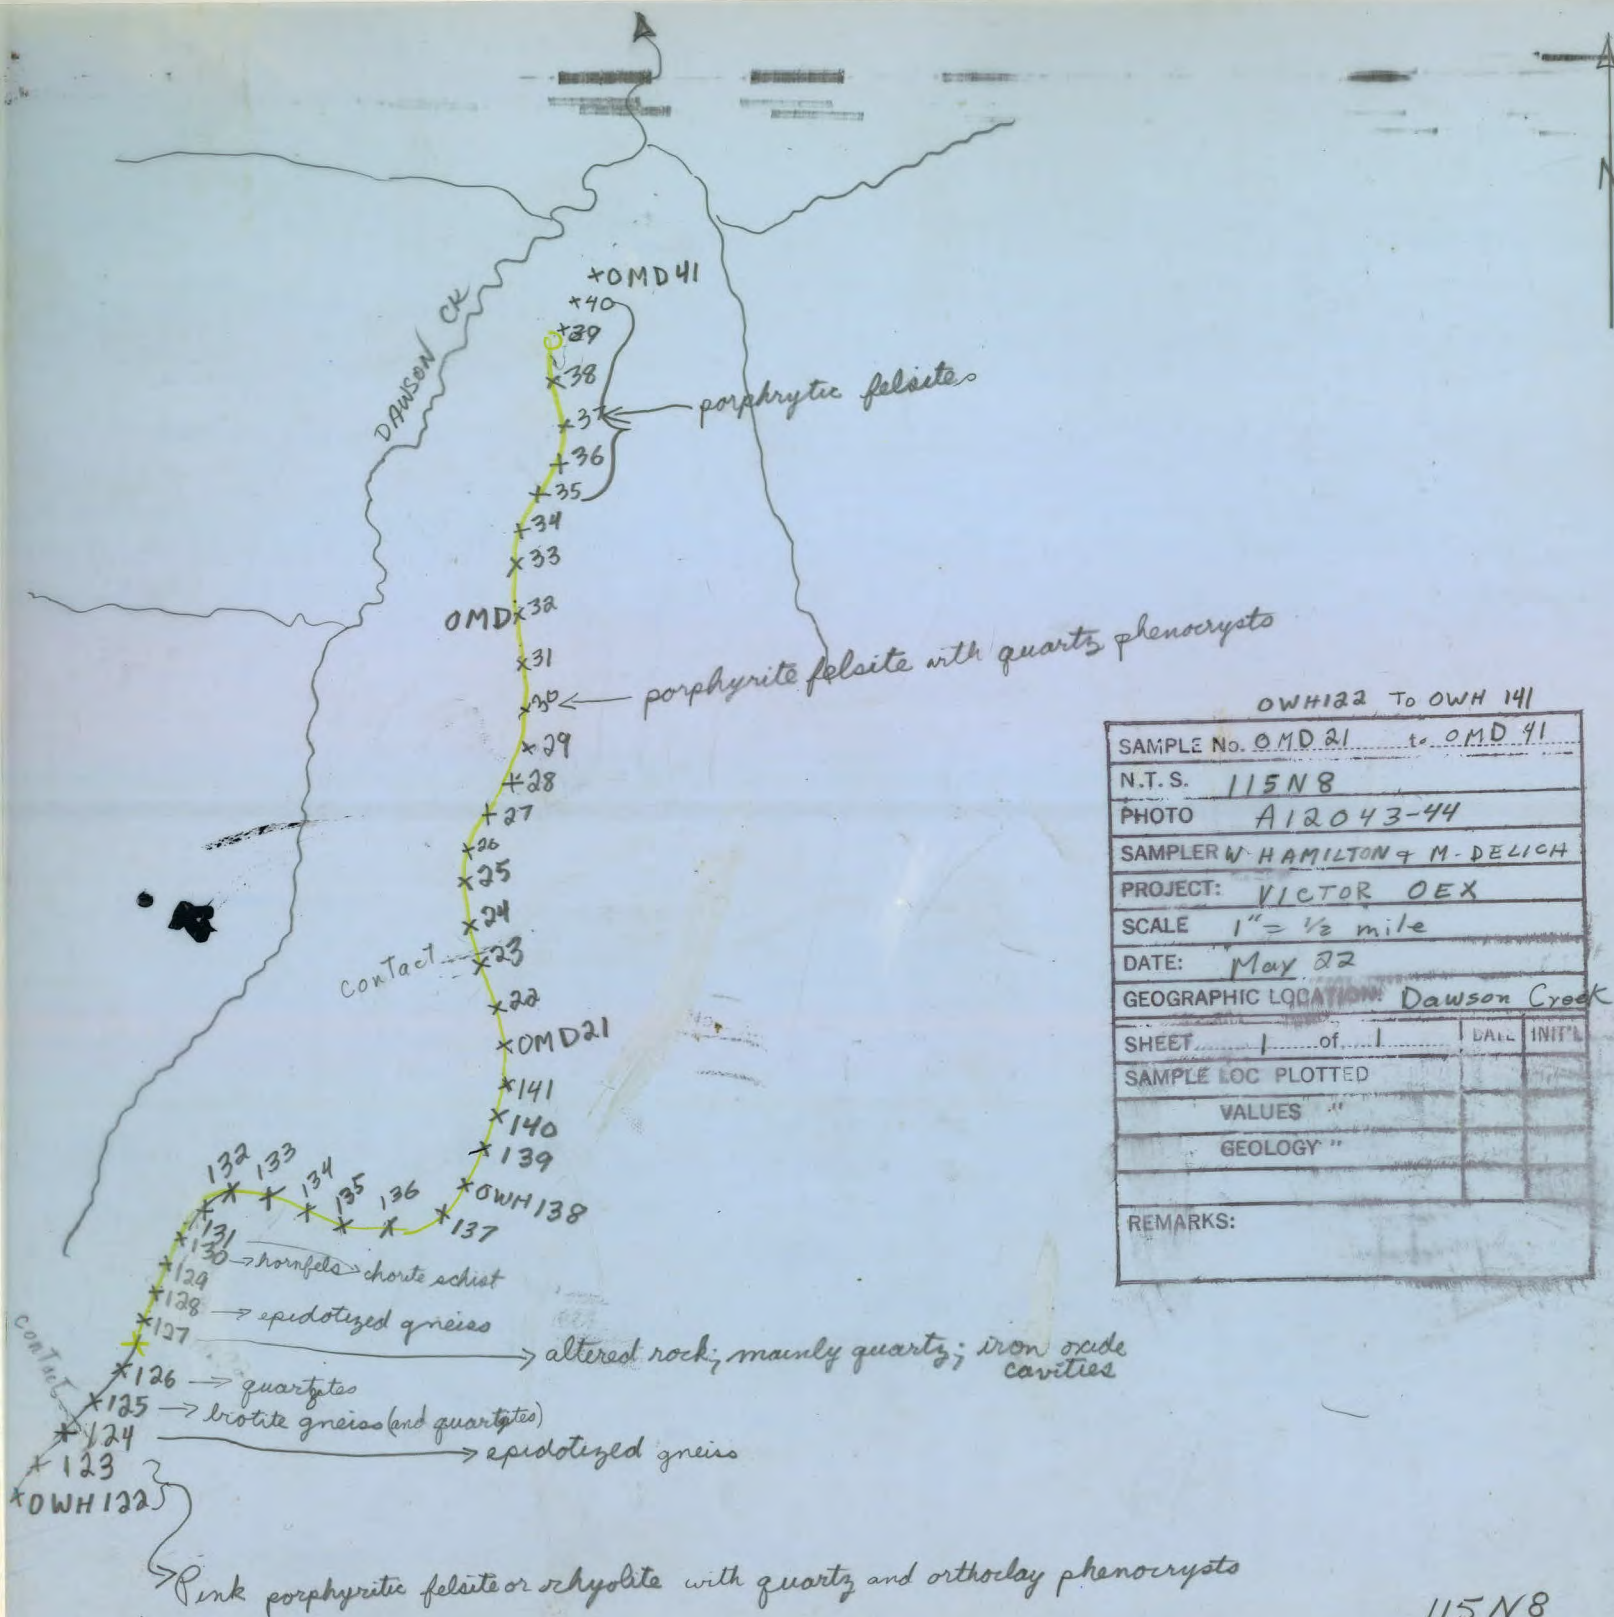 N
+OMD41
+40
+39
x38
x37 ← porphrytic felsites
+36
+35
+34
x33
DAWSON CK
OMDx32
x31
x30 ← porphyrite felsite with quartz phenocrysts
x29
+28
+27
x26
x25
x24
contact
x23
x22
xOMD21
x141
x140
x139
xOWH138
137
136
135
134
133
132
131
130 → hornfels → chorite schist
129
128 → epidotized gneiss
127 → altered rock; mainly quartz; iron oxide
cavities
126 → quartzites
125 → biotite gneiss (and quartzites)
contact
124 → epidotized gneiss
+123
xOWH122
Pink porphyritic felsite or rhyolite with quartz and orthoclay phenocrysts
OWH122 To OWH 141
SAMPLE No. OMD 21 to OMD 41
N.T.S. 115N8
PHOTO A12043-44
SAMPLER W HAMILTON & M. DELICH
PROJECT: VICTOR OEX
SCALE 1" = 1/2 mile
DATE: May 22
GEOGRAPHIC LOCATION: Dawson Creek
SHEET 1 of 1 DATE INIT'L
SAMPLE LOC PLOTTED
VALUES "
GEOLOGY "
REMARKS:
115N8